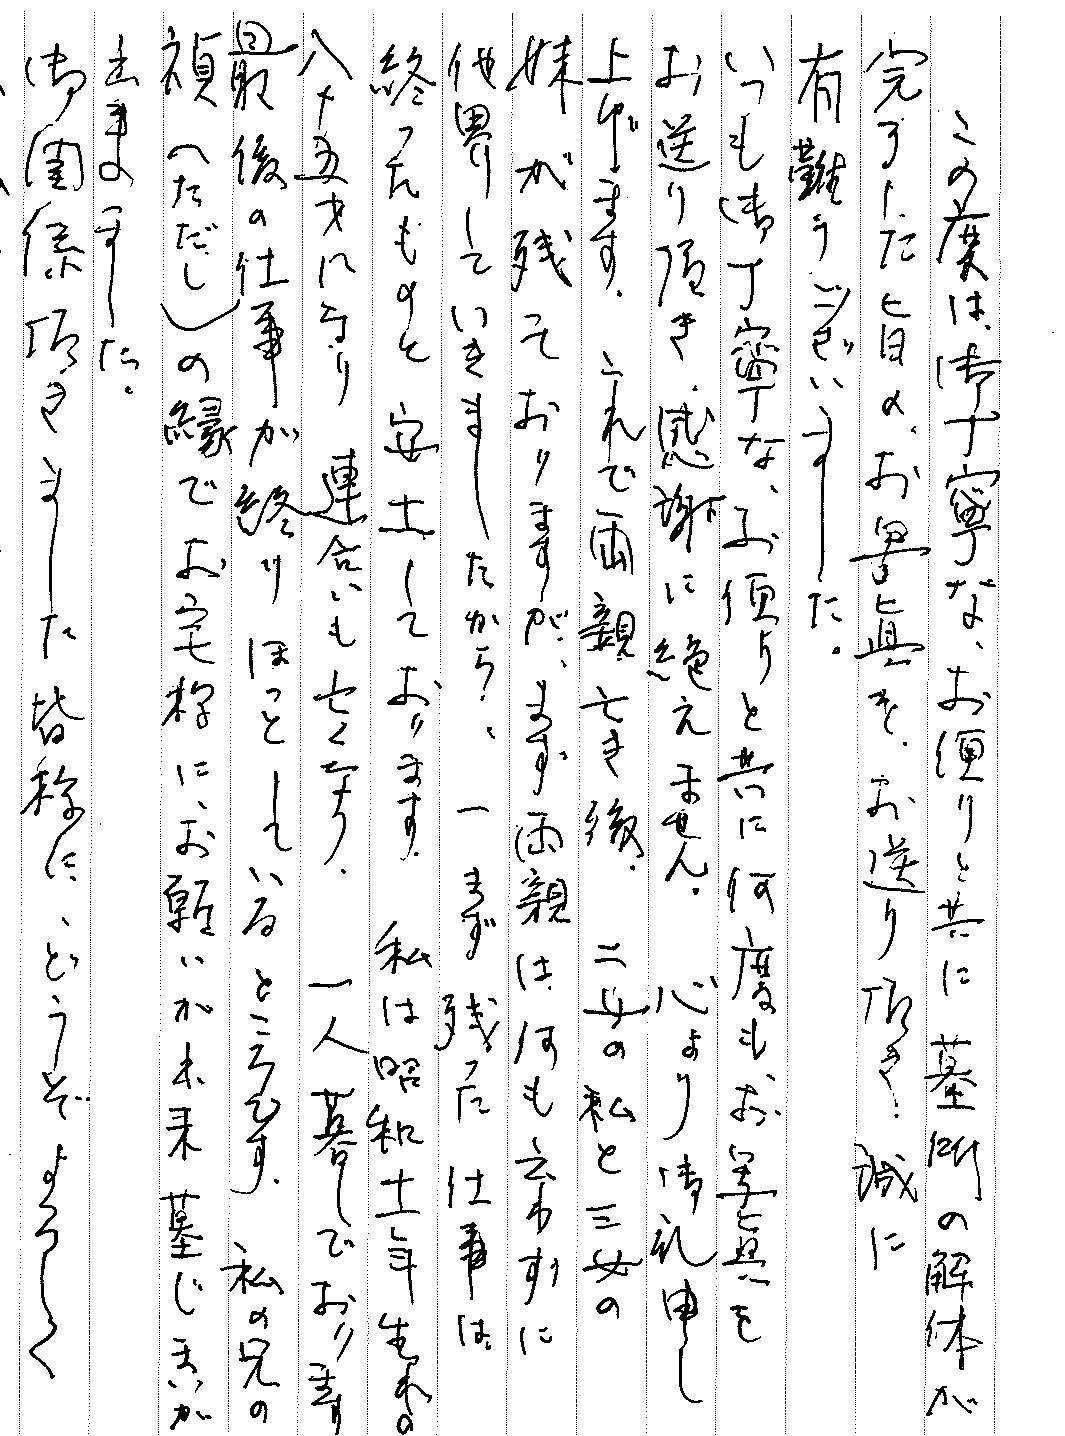 この度は、御丁寧な、お便りと共に墓所の解体が
完了した旨の、お写真を、お送り頂き、誠に
有難うございました。
いつも御丁寧な、お便りと共に何度も、お写真を
お送り頂き、感謝に絶えません。 心より御礼申し
上げます。 これで両親亡き後、二女の私と三女の
妹が残っておりますが、まず両親は、何も云わずに
他界していきましたから、一まず残った仕事は、
終ったものと安土しております。 私は昭和十一年生れの
八十五才になり 連合いも亡くなり、 一人暮しております
最後の仕事が終りほっとしているところです。 私の兄の
禎(ただし)の縁でお宅様に、お願いが出来墓じまいが
出来ました。
御関係頂きました皆様に、どうぞよろしく